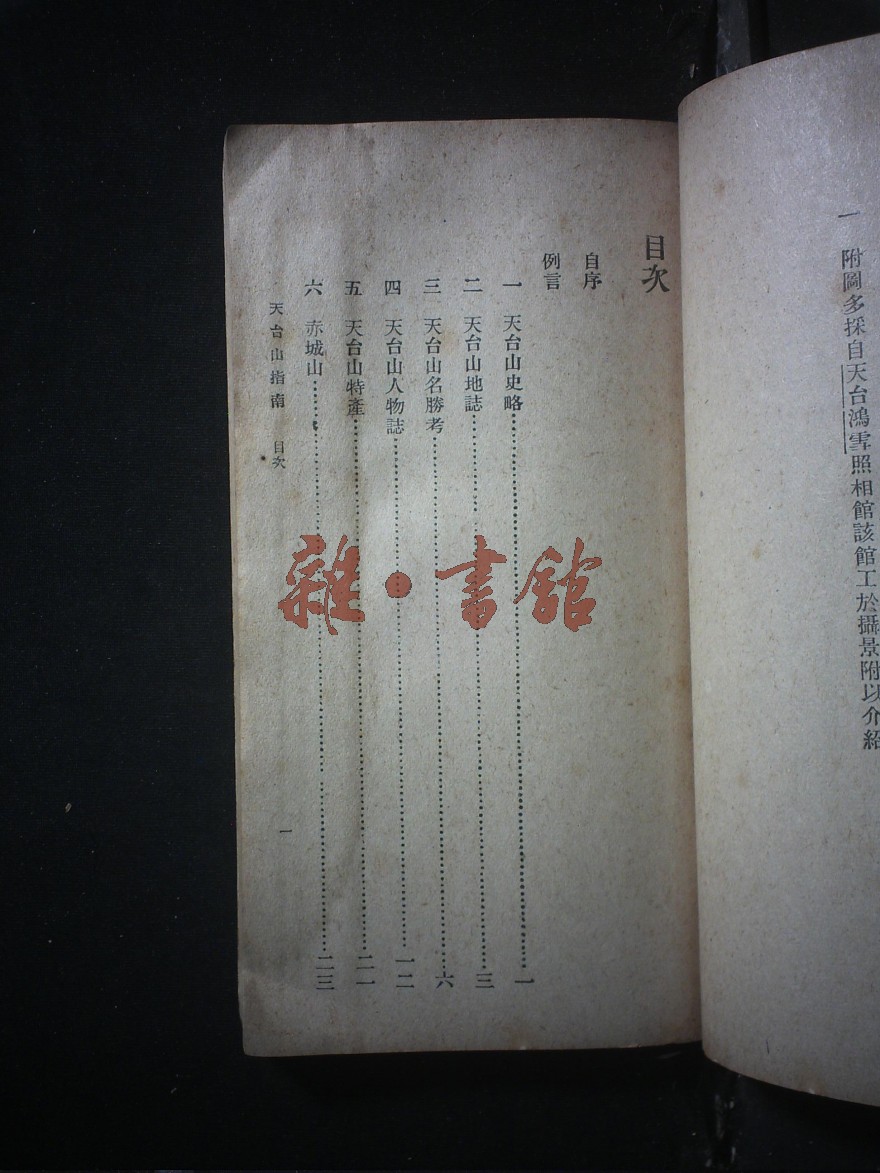 一　附圖多採自天台鴻雪照相館該館工於攝景附以介紹
目次
自序
例言
一　天台山史略……一
二　天台山地誌……三
三　天台山名勝考……六
四　天台山人物誌……一二
五　天台山特產……二一
六　赤城山……二三
天台山指南　目次
一
雜·書館